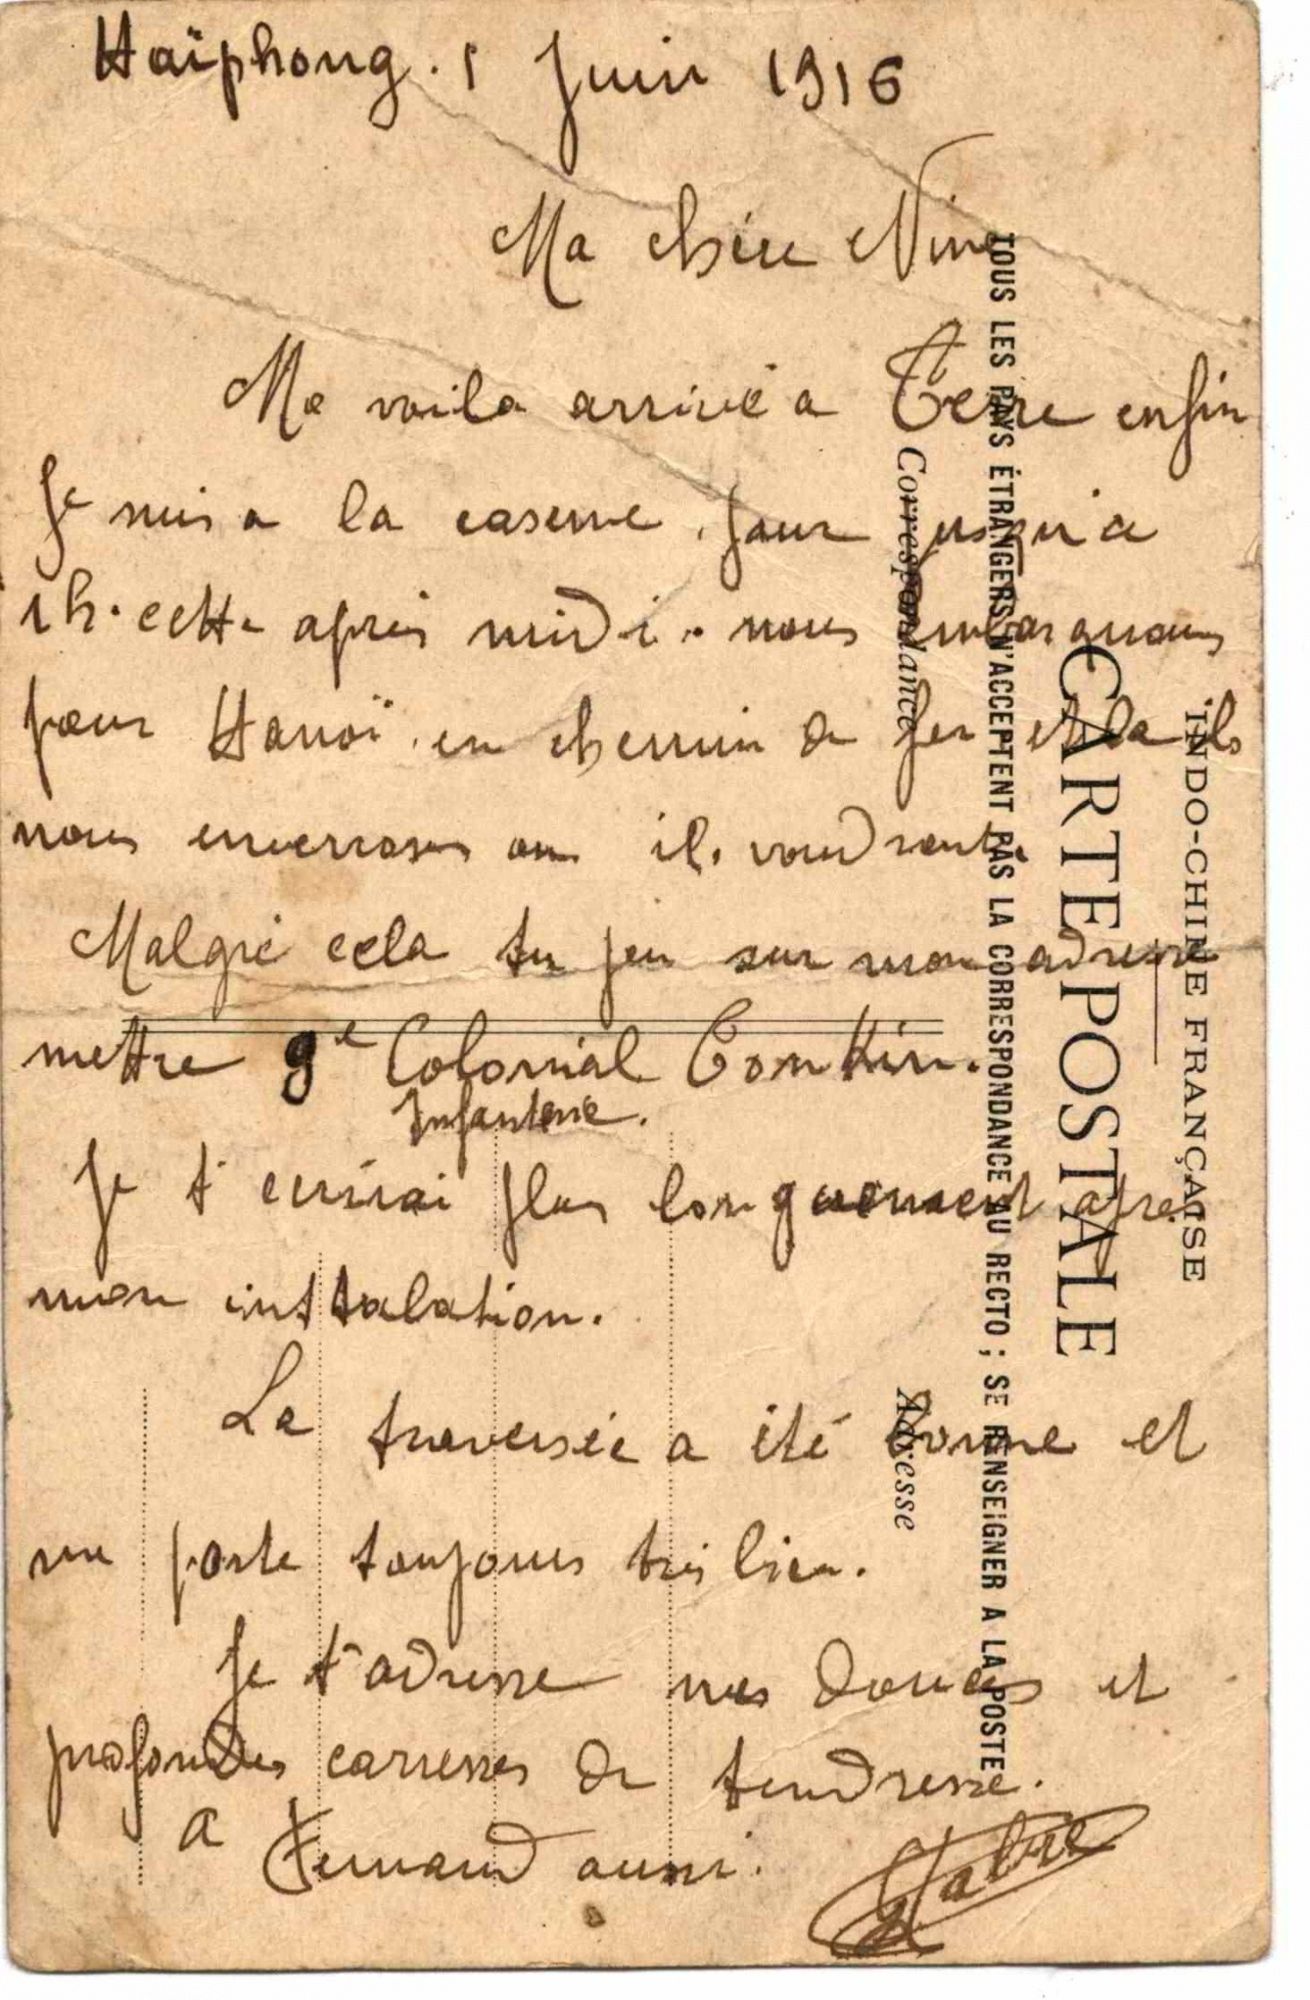 Haïphong. 1 Juin 1916
Ma chère Nine
Me voila arrivé a Terre enfin
Je suis a la caserne. pour jusqu'a
1h. cette après midi. nous embarquons
pour Hanoï. en chemin de fer et la ils
nous enverrons ou il. voudront.
Malgré cela tu peu sur mon adresse
mettre 9e Colonial Tonkin.
Infanterie.
Je t'ecrirai plus longuement apres
mon instalation.
La traversée a été bonne et
me porte toujours très bien.
Je t'adresse mes douces et
profondes caresses de tendresse.
a Fernand aussi.
Fabre
INDO-CHINE FRANÇAISE
CARTE POSTALE
TOUS LES PAYS ÉTRANGERS N'ACCEPTENT PAS LA CORRESPONDANCE AU RECTO ; SE RENSEIGNER A LA POSTE
Correspondance
Adresse